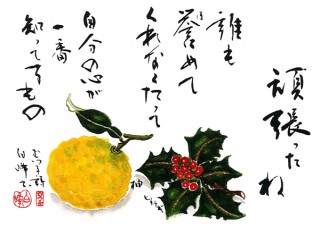 頑張ったね
誰も
誉めて
くれなくたって
自分の心が
一番
知ってるもの
柚